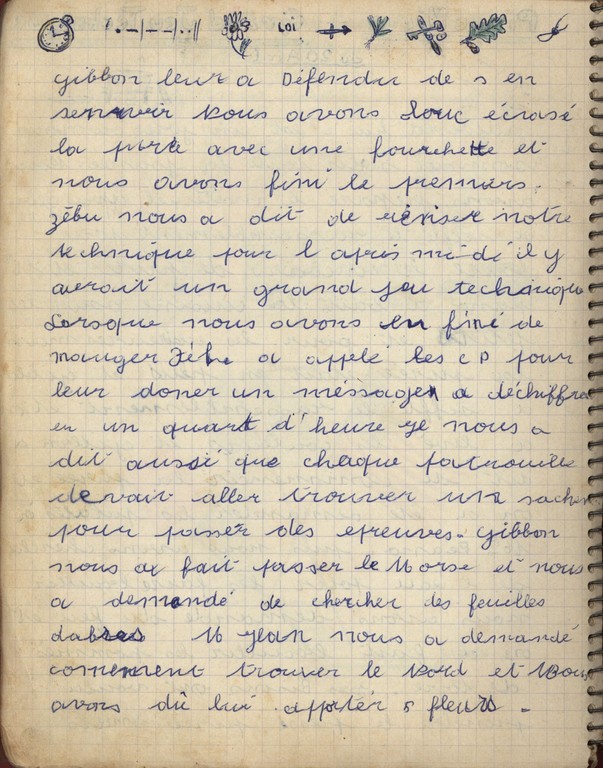 LOI
Gibbon leur a Défendu de s en
servir Nous avons donc écrasé
la purée avec une fourchette et
nous avons fini le premiers.
Zébu nous a dit de réviser notre
technique pour l après midi il y
aurait un grand jeu technique
Lorsque nous avons fini de
manger Zébu a appelé les CP pour
leur doner un méssage a déchiffrer
en un quart d'heure ye nous a
dit aussi que chaque patrouille
devait aller trouver un sachem
pour passer des epreuves. Gibbon
nous a fait passer le Morse et nous
a demandé de chercher des feuilles
dabres M yean nous a demandé
comment trouver le Nord et Nous
avons dû lui apporter 5 fleurs.